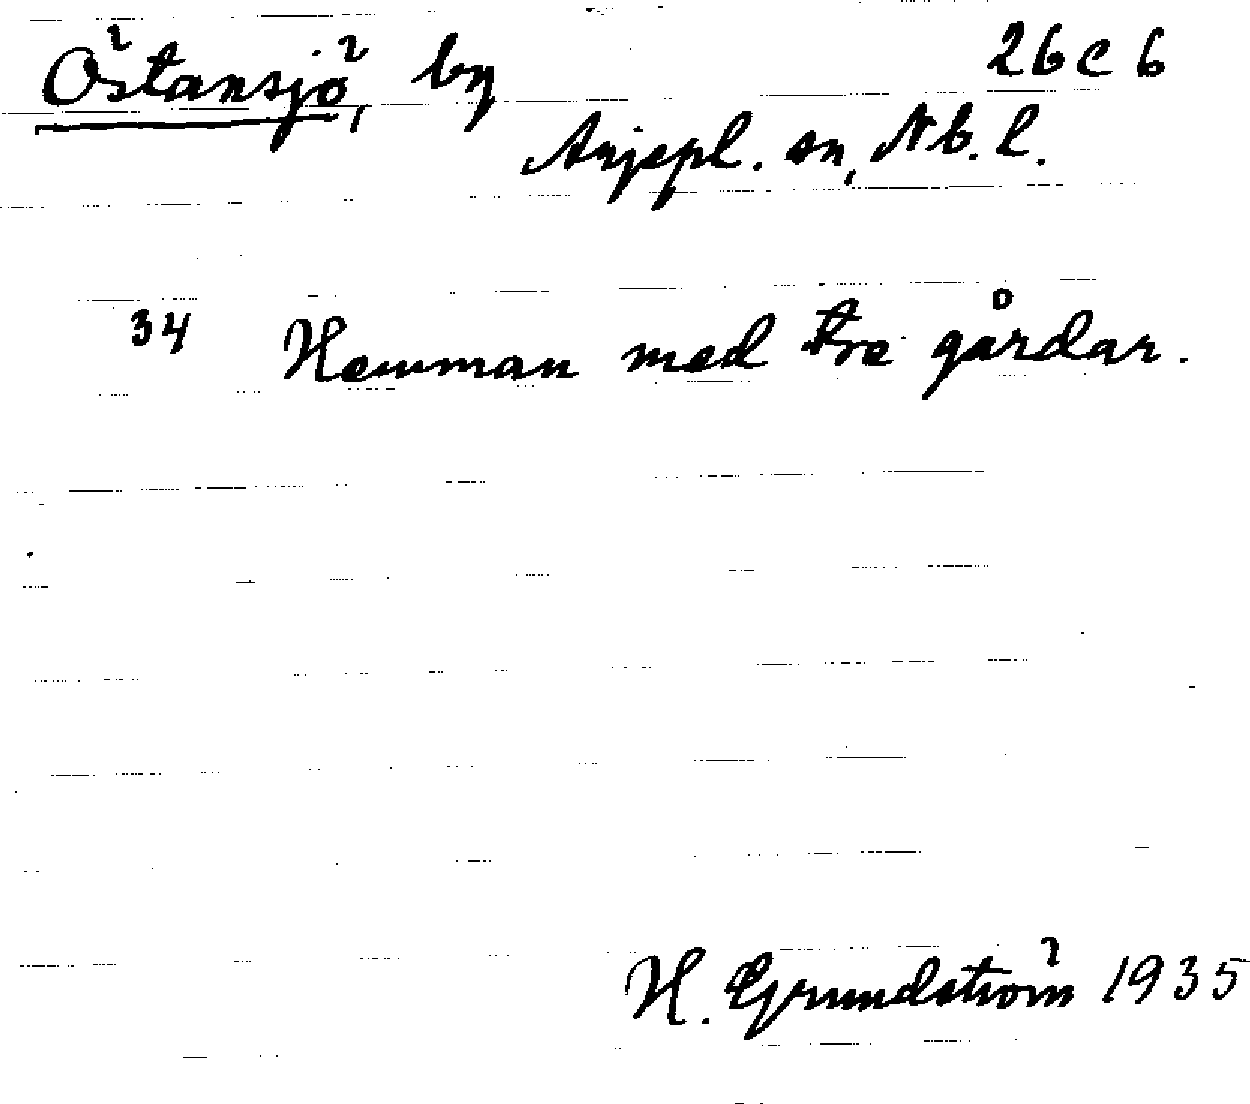 Östansjö, by 26 c 6
Arjepl. sn, Nb. l.
34 Hemman med tre gårdar.
H. Grundström 1935